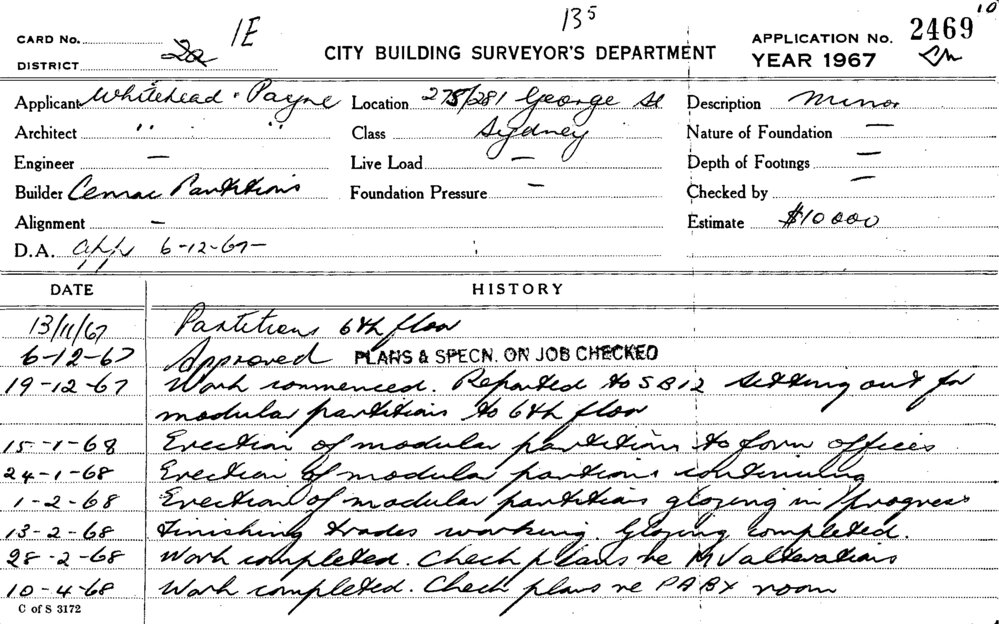 13⁵ 10
CARD No. 1E
DISTRICT 2a
CITY BUILDING SURVEYOR'S DEPARTMENT
APPLICATION No. 2469
YEAR 1967
Applicant Whitehead & Payne Location 275/281 George St Description Minor
Architect " " Class Sydney Nature of Foundation —
Engineer — Live Load — Depth of Footings —
Builder Cemac Partitions Foundation Pressure — Checked by —
Alignment — Estimate $10000
D.A. App 6-12-67
DATE HISTORY
13/11/67 Partitions 6th floor
6-12-67 Approved PLANS & SPECN. ON JOB CHECKED
19-12-67 Work commenced. Reported to SB12 Setting out for
modular partitions to 6th floor
15-1-68 Erection of modular partitions to form offices
24-1-68 Erection of modular partions continuing
1-2-68 Erection of modular partitions glazing in progress
13-2-68 Finishing trades working. Glazing completed.
28-2-68 Work completed. Check plans re MV alterations
10-4-68 Work completed. Check plans re PABX room
C of S 3172